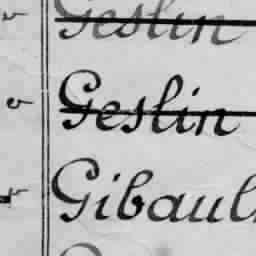 Geslin
Geslin
Gibaul